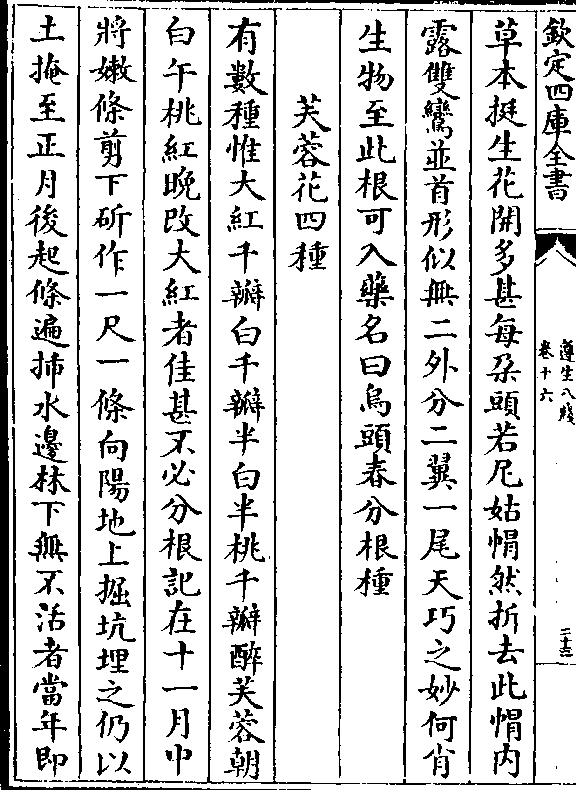 欽定四庫全書
遵生八牋
卷十六
草本挺生花開多甚每朶頭若尼姑㡓然折去此㡓内
露雙鸞並首形似無二外分二翼一尾天巧之妙何肖
生物至此根可入藥名曰烏頭春分根種
芙蓉花四種
有數種惟大紅千瓣白千瓣半白半桃千瓣醉芙蓉朝
白午桃紅晚改大紅者佳甚不必分根記在十一月中
將嫩條剪下斫作一尺一條向陽地上掘坑埋之仍以
土掩至正月後起條遍揷水邊林下無不活者當年即